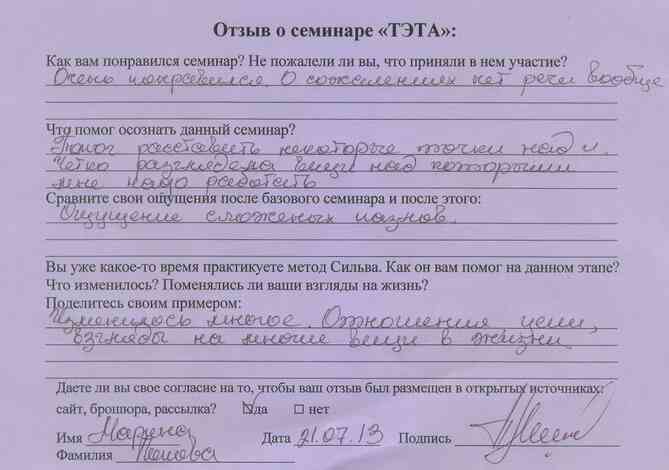 Отзыв о семинаре «ТЭТА»:
Как вам понравился семинар? Не пожалели ли вы, что приняли в нем участие?
Очень понравился. О сожалениях нет речи вообще
Что помог осознать данный семинар?
Помог расставить некоторые точки над и.
Четко разглядела вещи над которыми
мне надо работать
Сравните свои ощущения после базового семинара и после этого:
Ощущение сложеных пазлов.
Вы уже какое-то время практикуете метод Сильва. Как он вам помог на данном этапе?
Что изменилось? Поменялись ли ваши взгляды на жизнь?
Поделитесь своим примером:
Изменилось многое. Отношения, цели,
взгляды на многие вещи в жизни.
Даете ли вы свое согласие на то, чтобы ваш отзыв был размещен в открытых источниках:
сайт, брошюра, рассылка? да нет
Имя Марина Дата 21.07.13 Подпись
Фамилия